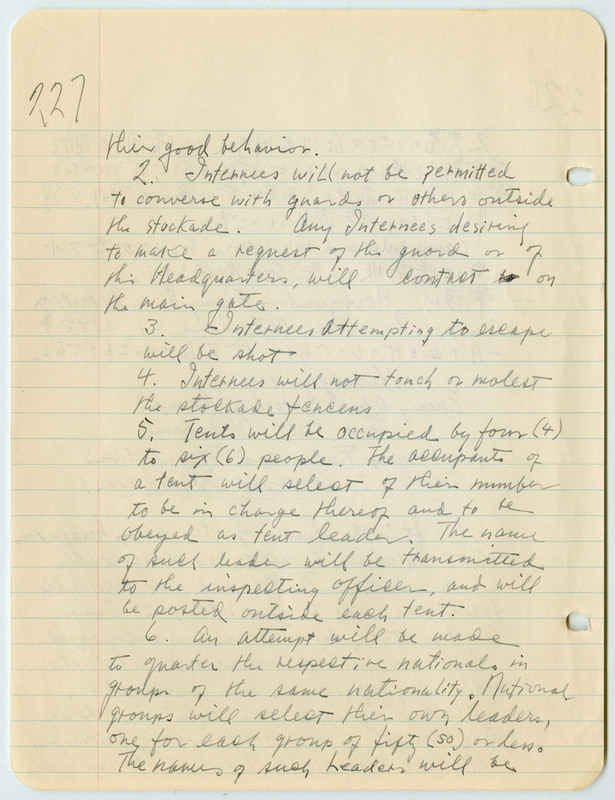 227
their good behavior.
2. Internees will not be permitted
to converse with guards or others outside
the stockade. Any Internees desiring
to make a request of the guard or of
this Headquarters, will contact on
the main gate.
3. Internees Attempting to escape
will be shot
4. Internees will not touch or molest
the stockade fenceens
5. Tents will be occupied by four (4)
to six (6) people. The accupants of
a tent will select of their number
to be in charge thereof and to be
obeyed as tent leader. The name
of such leader will be transmitted
to the inspecting officer, and will
be posted outside each tent.
6. An attempt will be made
to quarter the respective nationals in
groups of the same nationality. National
groups will select their own leaders,
one for each group of fifty (50) or less.
The names of such leaders will be